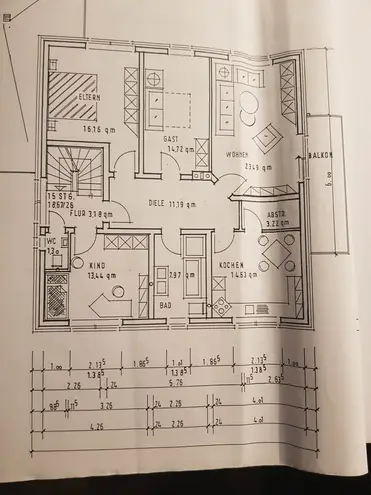 ELTERN
16,16 qm
GAST
14,72 qm
WOHNEN
23,49 qm
BALKON
5.00
15 STG.
18,67/26
FLUR 3,18 qm
DIELE 11,19 qm
ABSTR.
3,22 qm
WC
KIND
13,44 qm
7,97 qm
BAD
KOCHEN
14,63 qm
1.00 2.13⁵ 1.86⁵ 1.01 1.86⁵ 2.13⁵ 1.00
1.38⁵ 1.38⁵ 1.38⁵
2.26 24 5.76 11⁵ 2.63⁵
88⁵ 11⁵ 3.26 24 2.26 24 4.01
4.26 24 2.26 24 4.01